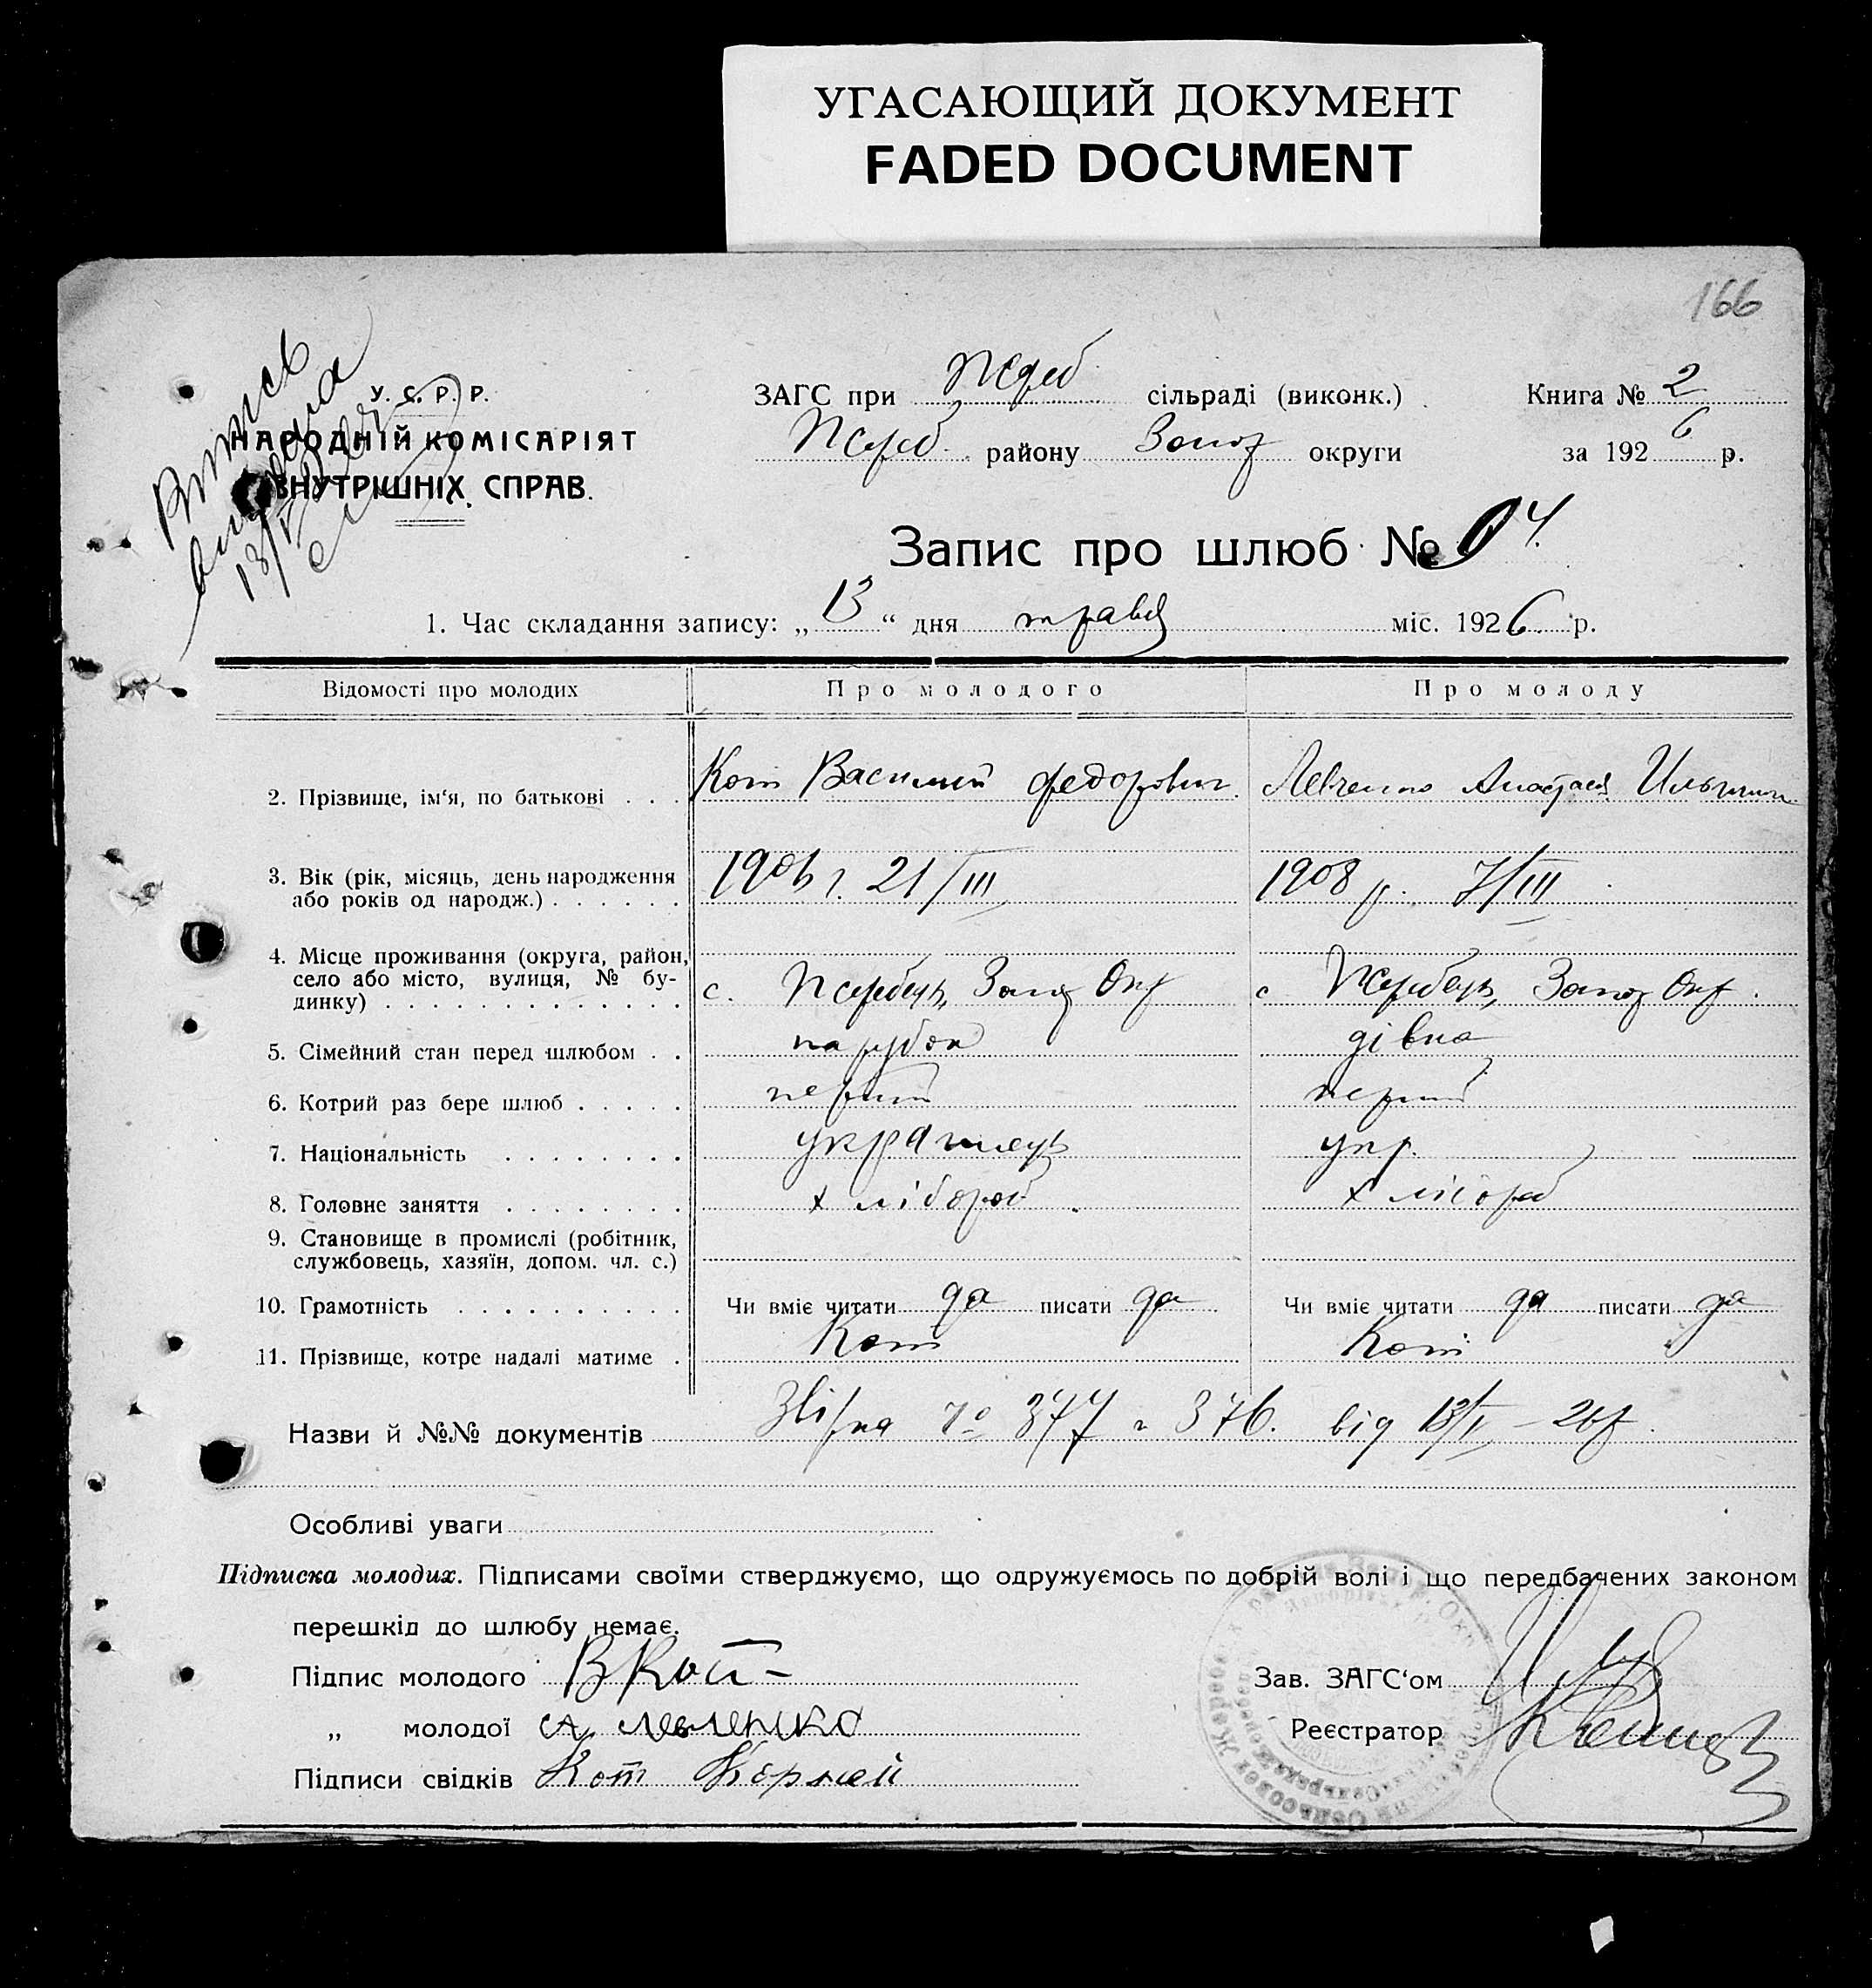 УГАСАЮЩИЙ ДОКУМЕНТ
FADED DOCUMENT
166
Випись
видана
13/V
У. С. Р. Р.
НАРОДНІЙ КОМІСАРІЯТ
ВНУТРІШНІХ СПРАВ.
ЗАГС при Жереб сільраді (виконк.) Книга № 2
Жереб. району Запор округи за 1926 р.
Запис про шлюб № 94.
1. Час складання запису: „13“ дня травня міс. 1926 р.
Відомості про молодих Про молодого Про молоду
2. Прізвище, ім‘я, по батькові . . . Кот Василий Федорович. Левченко Анастасія Ильинич.
3. Вік (рік, місяць, день народження
або років од народж.) . . . . . . 1906 г. 21/III 1908 р. 7/III
4. Місце проживання (округа, район,
село або місто, вулиця, № бу-
динку) . . . . . . . . . . . . . с. Жеребець, Запор Окр с Жеребець, Запор Окр.
5. Сімейний стан перед шлюбом . . парубок дівка
6. Котрий раз бере шлюб . . . . . перший перший
7. Національність . . . . . . . . українець укр.
8. Головне заняття . . . . . . . . хлібороб хлібороб
9. Становище в промислі (робітник,
службовець, хазяїн, допом. чл. с.)
10. Грамотність . . . . . . . . . . Чи вміє читати да писати да Чи вміє читати да писати да
11. Прізвище, котре надалі матиме . Кот Кот
Назви й №№ документів Звірка № 377 и 376. від 13/V – 26 р.
Особливі уваги
Підписка молодих. Підписами своїми стверджуємо, що одружуємось по добрій волі і що передбачених законом
перешкід до шлюбу немає.
Підпис молодого В Кот Зав. ЗАГС‘ом
„ молодої А Левченко Реєстратор
Підписи свідків Кот Корней